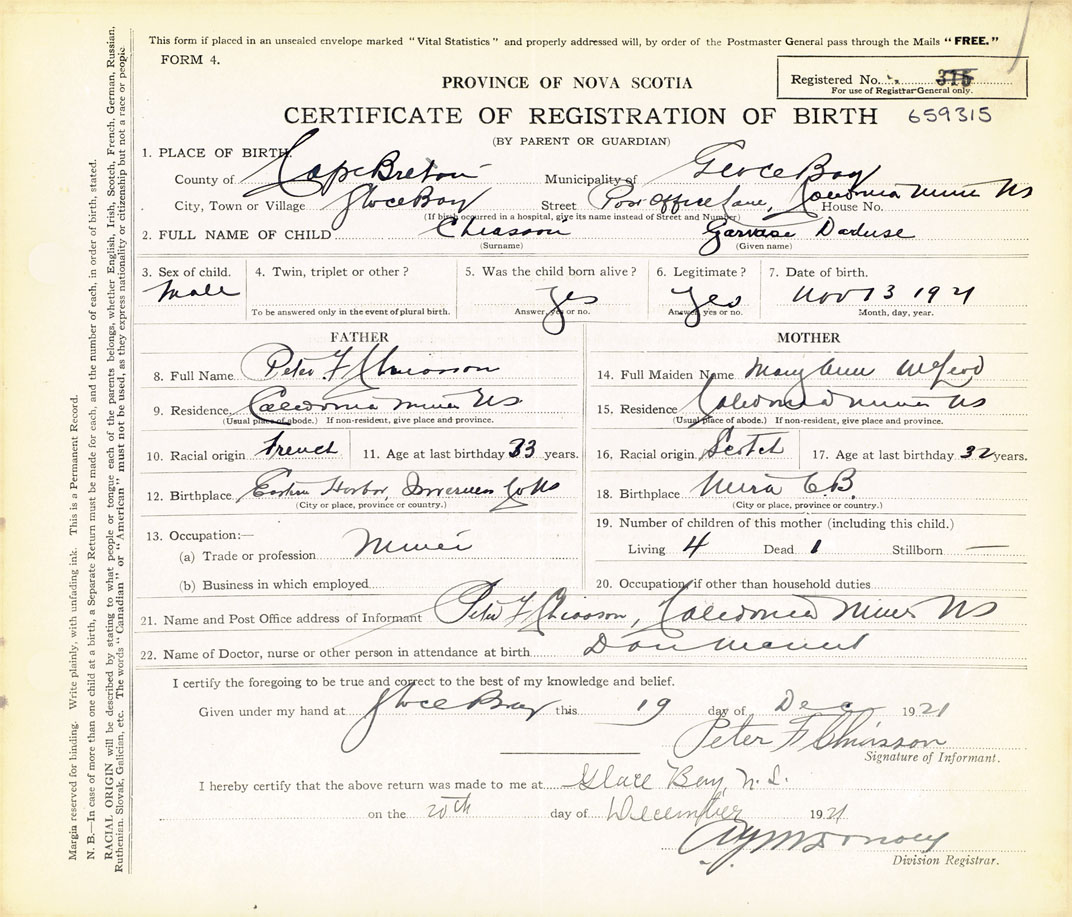 This form if placed in an unsealed envelope marked "Vital Statistics" and properly addressed will, by order of the Postmaster General pass through the Mails "FREE."
FORM 4.
Registered No. 315
For use of Registrar General only.
PROVINCE OF NOVA SCOTIA
CERTIFICATE OF REGISTRATION OF BIRTH 659315
(BY PARENT OR GUARDIAN)
1. PLACE OF BIRTH.
County of Cape Breton Municipality of Glace Bay
City, Town or Village Glace Bay Street Post Office Lane, Caledonia Mines NS House No.
(If birth occurred in a hospital, give its name instead of Street and Number)
2. FULL NAME OF CHILD Chiasson Garvase
(Surname) (Given name)
3. Sex of child. 4. Twin, triplet or other? 5. Was the child born alive? 6. Legitimate? 7. Date of birth.
Male Yes Yes Nov 13 1921
To be answered only in the event of plural birth. Answer, yes or no. Answer yes or no. Month, day, year.
FATHER MOTHER
8. Full Name Peter F Chiasson 14. Full Maiden Name Mary Ann McLeod
9. Residence Caledonia Mines NS 15. Residence Caledonia Mines NS
(Usual place of abode.) If non-resident, give place and province. (Usual place of abode.) If non-resident, give place and province.
10. Racial origin French 11. Age at last birthday 33 years. 16. Racial origin Scotch 17. Age at last birthday 32 years.
12. Birthplace Eastern Harbor, Inverness Co NS 18. Birthplace Mira C.B.
(City or place, province or country.) (City or place, province or country.)
13. Occupation:— 19. Number of children of this mother (including this child.)
(a) Trade or profession Miner Living 4 Dead 1 Stillborn —
(b) Business in which employed 20. Occupation, if other than household duties
21. Name and Post Office address of Informant Peter F Chiasson, Caledonia Mines NS
22. Name of Doctor, nurse or other person in attendance at birth
I certify the foregoing to be true and correct to the best of my knowledge and belief.
Given under my hand at Glace Bay this 19 day of Dec 1921
Peter F Chiasson
Signature of Informant.
I hereby certify that the above return was made to me at Glace Bay, N.S.
on the 20th day of December 1921
Division Registrar.
Margin reserved for binding. Write plainly, with unfading ink. This is a Permanent Record.
N. B.—In case of more than one child at a birth, a Separate Return must be made for each, and the number of each, in order of birth, stated.
RACIAL ORIGIN will be described by stating to what people or tongue each of the parents belongs, whether English, Irish, Scotch, French, German, Russian,
Ruthenian, Slovak, Galician, etc. The words "Canadian" or "American" must not be used, as they express nationality or citizenship but not a race or people